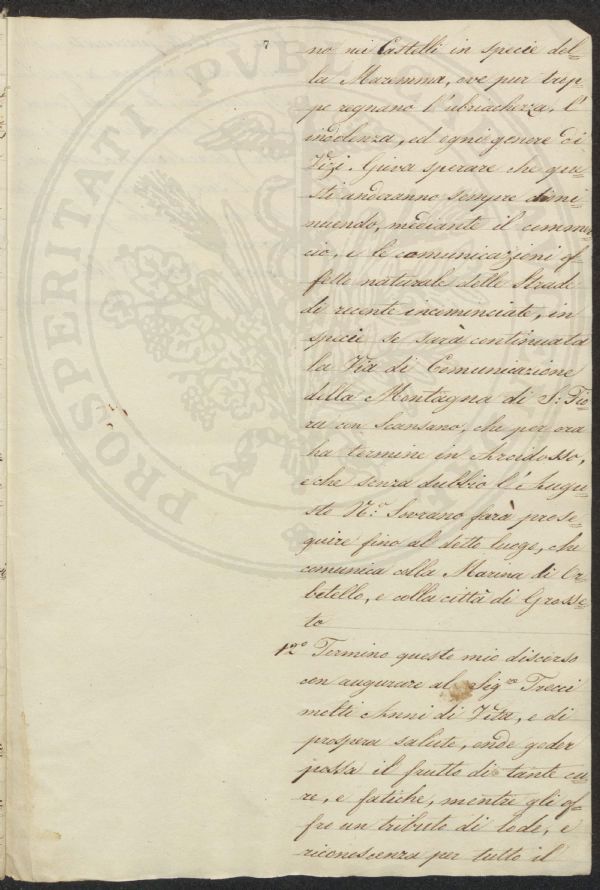 7
PROSPERITATI PVBLI
no nei Castelli in specie del=
la Maremma, ove pur trop=
po regnano l'ubriachezza, l'
indolenza, ed ogni genere di
Vizj. Giova sperare che que=
sti anderanno sempre dimi=
nuendo, mediante il commer=
cio, e le comunicazioni ef=
fetto naturale delle Strade
di recente incominciate, in
specie se sarà continuata
la Via di Comunicazione
della Montagna di S: Fio=
ra con Scansano, che per ora
ha termine in Arcidosso,
e che senza dubbio l'Augu=
sto N:o Sovrano farà prose=
guire fino al detto luogo, che
comunica colla Marina di Or=
betello, e colla città di Grosse=
to
12o Termino questo mio discorso
con augurare al Sigre Trecci
molti Anni di Vita, e di
prospera salute, onde goder
possa il frutto di tante cu=
re, e fatiche, mentre gli of=
fro un tributo di lode, e
riconoscenza per tutto il